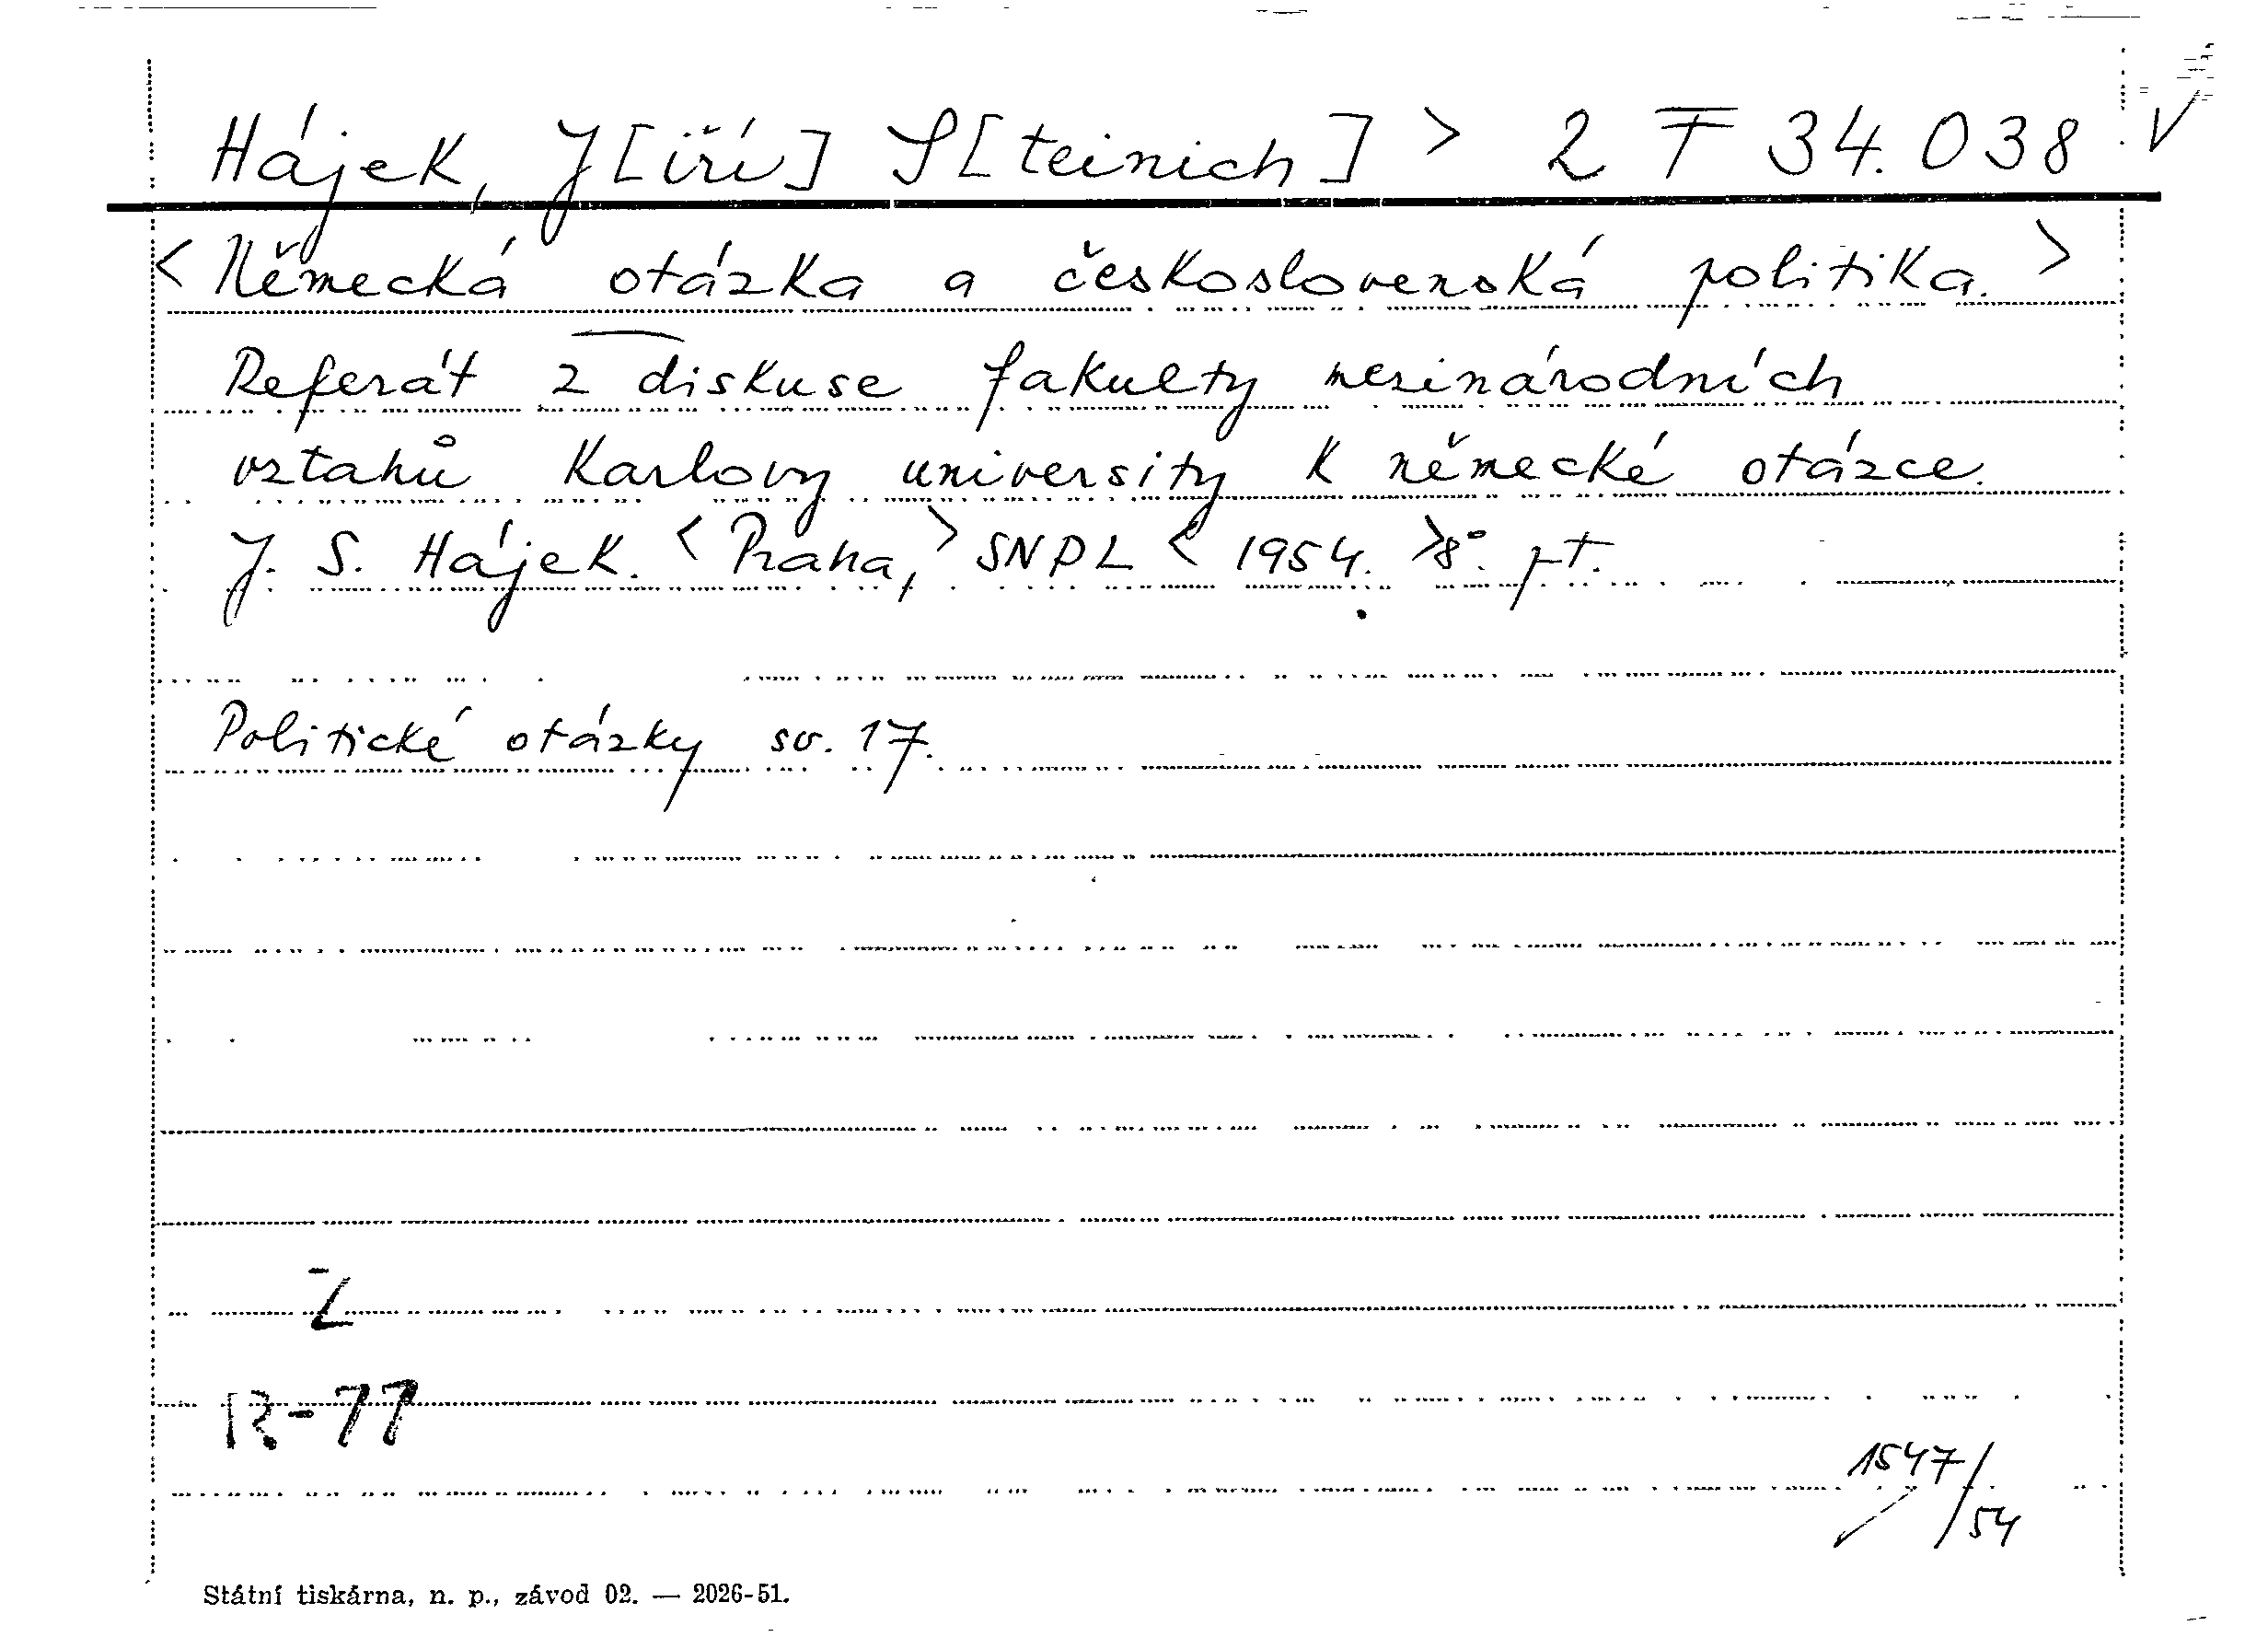 Hájek, J[iří] S[teinich] > 2 T 34.038 V
< Německá otázka a československá politika. >
Referát z diskuse fakulty mezinárodních
vztahů Karlovy university k německé otázce.
J. S. Hájek. < Praha, > SNPL < 1954. > 8°. pt.
Politické otázky sv. 17.
Z
R-77
1547/
54
Státní tiskárna, n. p., závod 02. — 2026-51.